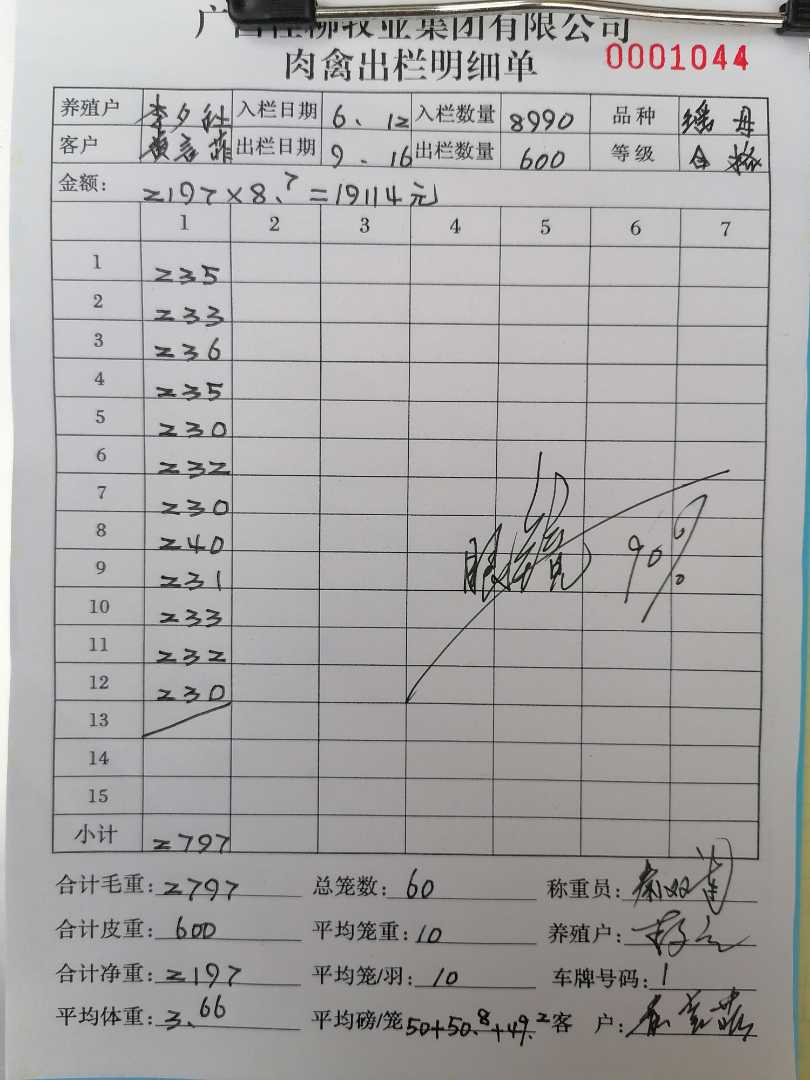 牧业集团有限公司
肉禽出栏明细单 0001044
养殖户 李夕 入栏日期 6.12 入栏数量 8990 品种 瑶母
客户 出栏日期 9.16 出栏数量 600 等级 合格
金额: 2197×8.7=19114元
1 2 3 4 5 6 7
1 235
2 233
3 236
4 235
5 230
6 232
7 230
8 240
9 231
10 233
11 232
12 230
13
14
15
眼 90%
小计 2797
合计毛重: 2797 总笼数: 60 称重员:
合计皮重: 600 平均笼重: 10 养殖户:
合计净重: 2197 平均笼/羽: 10 车牌号码: 1
平均体重: 3.66 平均磅/笼 50+50.8+49.2 客 户: